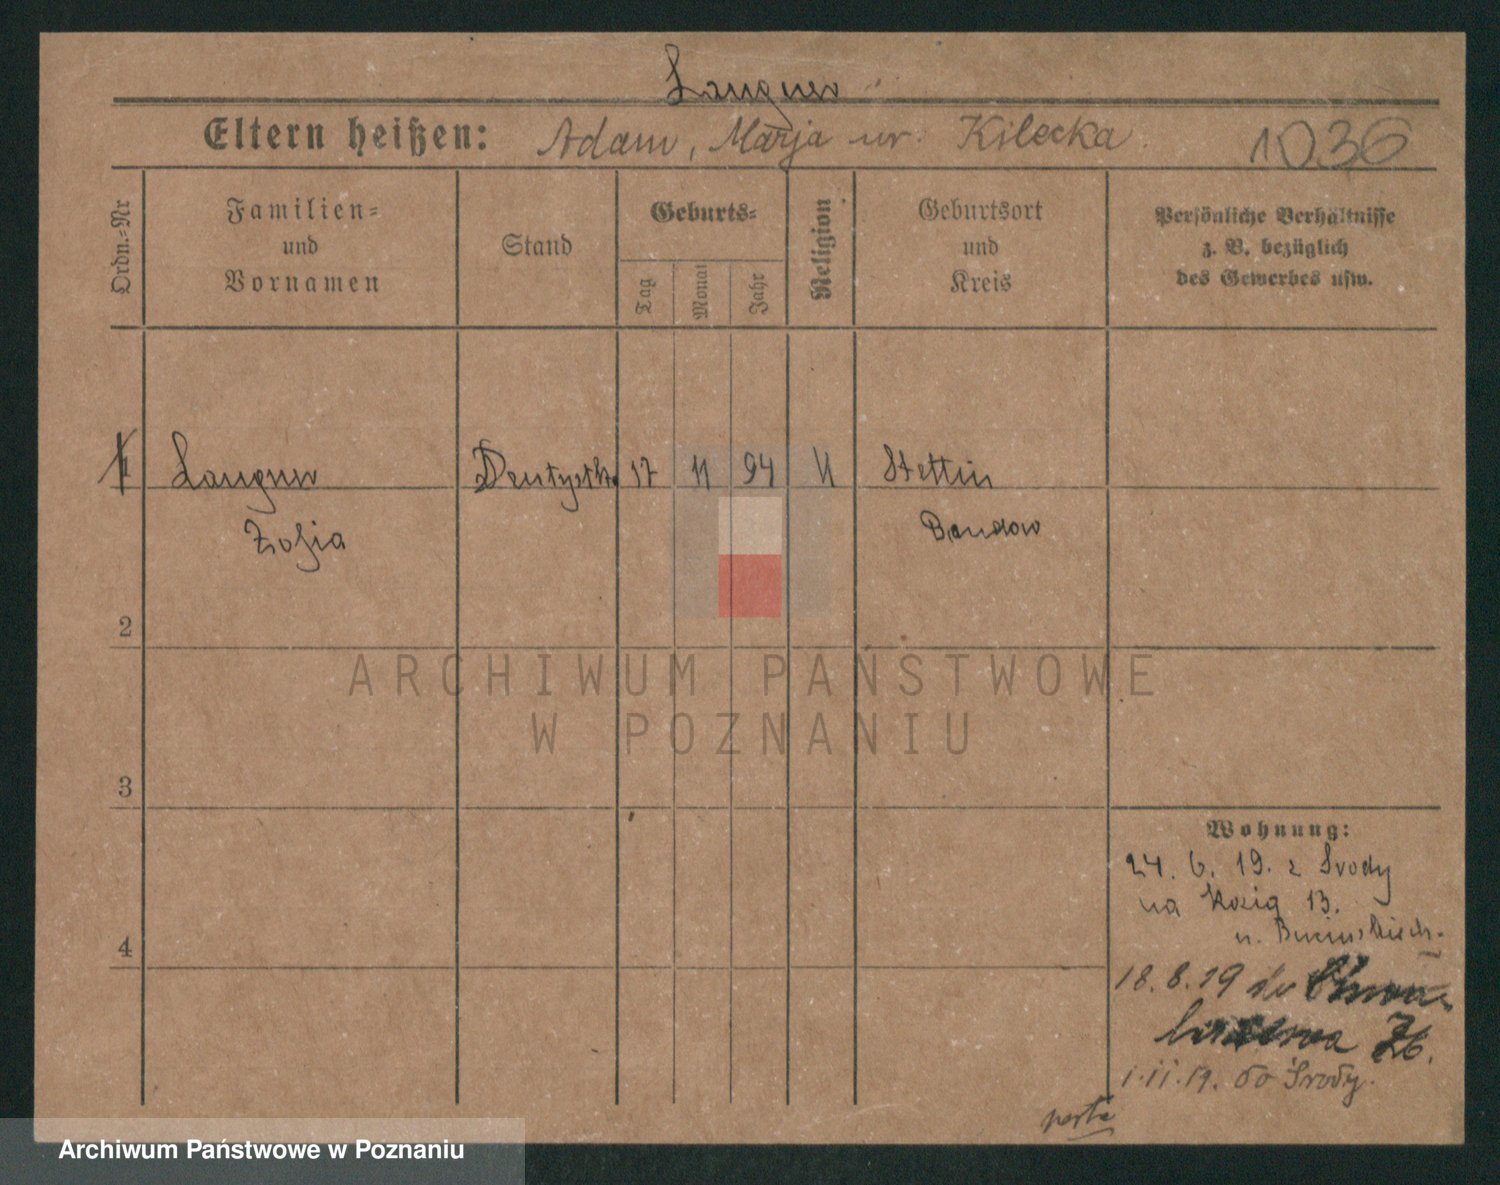 Langner
Eltern heißen: Adam, Marja ur. Kilecka. 1036
Ordn.-Nr
Familien-
und
Vornamen
Stand
Geburts-
Tag
Monat
Jahr
Religion
Geburtsort
und
Kreis
Persönliche Verhältnisse
z. B. bezüglich
des Gewerbes usw.
1 Langner Dentystk. 17 11 94 Stettin
Zofja Bandow
2
ARCHIWUM PAŃSTWOWE
W POZNANIU
3
Wohnung:
24. 6. 19. z Środy
na Kozią 13.
u.
4
18.8.19 do
1.11.19. do Środy.
Archiwum Państwowe w Poznaniu